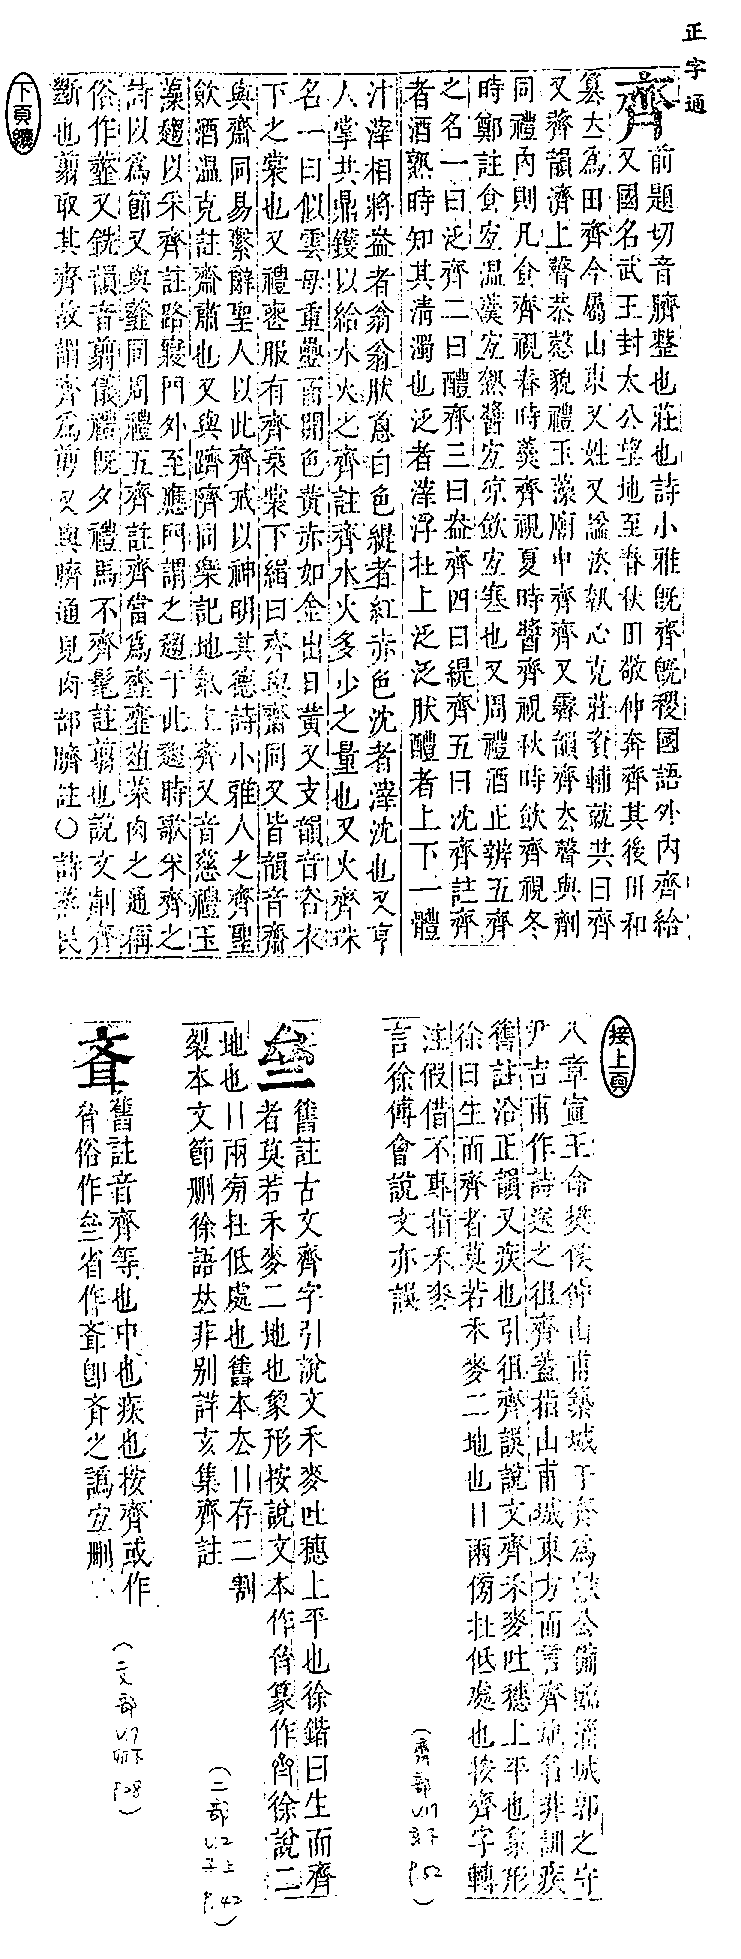 正字通
齊
前題切音臍整也莊也詩小雅旣齊旣稷國語外內齊給
又國名武王封太公望地至春秋田敬仲奔齊其後田和
篡太爲田齊今屬山東又姓又諡法執心克莊資輔就共曰齊
又薺韻濟上聲恭慤貌禮玉藻廟中齊齊又霽韻齊去聲與劑
同禮內則凡食齊視春時羹齊視夏時醬齊視秋時飮齊視冬
時鄭註食宜溫羹宜熱醬宜凉飮宜寒也又周禮酒正辨五齊
之名一曰泛齊二曰醴齊三曰盎齊四曰緹齊五曰沈齊註齊
者酒熟時知其清濁也泛者滓浮在上泛泛肰醴者上下一體
汁滓相將盎者翁翁肰蔥白色緹者紅赤色沈者滓沈也又亨
人掌共鼎鑊以給水火之齊註齊水火多少之量也又火齊珠
名一曰似雲母重疊而開色黃赤如金出日黃又支韻音咨衣
下之裳也又禮喪服有齊衰裳下緝曰齊與齋同又皆韻音齋
與齋同易繫辭聖人以此齊戒以神明其德詩小雅人之齊聖
飮酒溫克註齋肅也又與躋隮同樂記地氣上齊又音慈禮玉
藻趨以采齊註路寢門外至應門謂之趨于此趨時歌采齊之
詩以爲節又與齏同周禮五齊註齊當爲齏齏菹菜肉之通稱
俗作虀又銑韻音翦儀禮旣夕禮馬不齊髦註翦也說文劑齊
斷也翦取其齊故謂齊爲剪又與臍通見肉部臍註○詩烝民
下頁續
接上頁
八章宣王命樊侯仲山甫築城于齊爲
尹吉甫作詩送之徂齊蓋指山甫城東方而言齊
舊註沿正韻又疾也引徂齊誤說文齊禾麥吐穗上平也象形
徐曰生而齊者莫若禾麥二地也兩傍在低處也按齊字轉
注假借不專指禾麥
言徐傅會說文亦誤
(齊部 V.17 亥下 P.52)
亝
舊註古文齊字引說文禾麥吐穗上平也徐鍇曰生而齊
者莫若禾麥二地也象形按說文本作𠫼篆作𠫼徐說二
地也兩旁在低處也舊本去存二割
裂本文節刪徐語𠀤非别詳亥集齊註
(二部 V.2 子上 P.42)
舊註音齊等也中也疾也按齊或作
俗作亝省作卽斉之譌宜刪
(二文部 V.7 卯下 P.28)